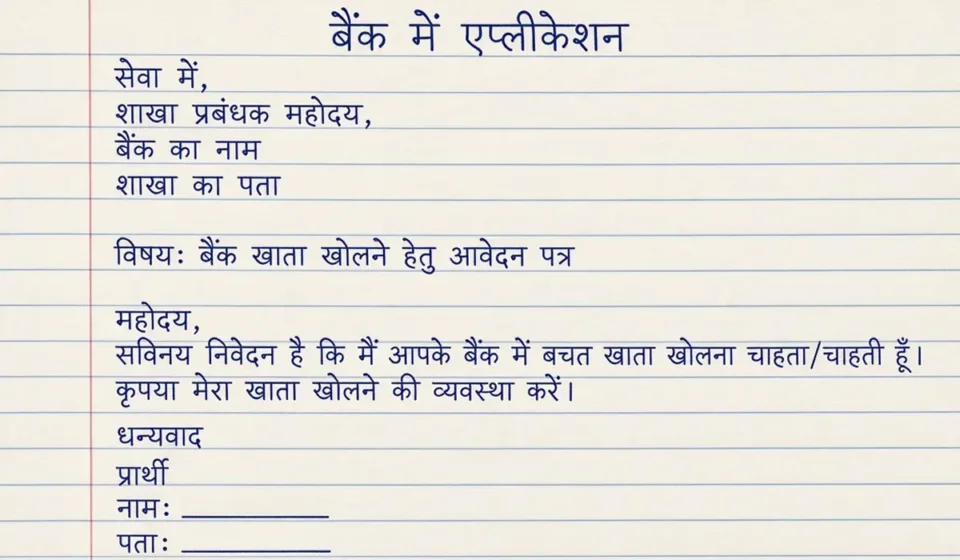 बैंक में एप्लीकेशन
सेवा में,
शाखा प्रबंधक महोदय,
बैंक का नाम
शाखा का पता
विषय: बैंक खाता खोलने हेतु आवेदन पत्र
महोदय,
सविनय निवेदन है कि मैं आपके बैंक में बचत खाता खोलना चाहता/चाहती हूँ।
कृपया मेरा खाता खोलने की व्यवस्था करें।
धन्यवाद
प्रार्थी
नाम: ____________
पता: ____________